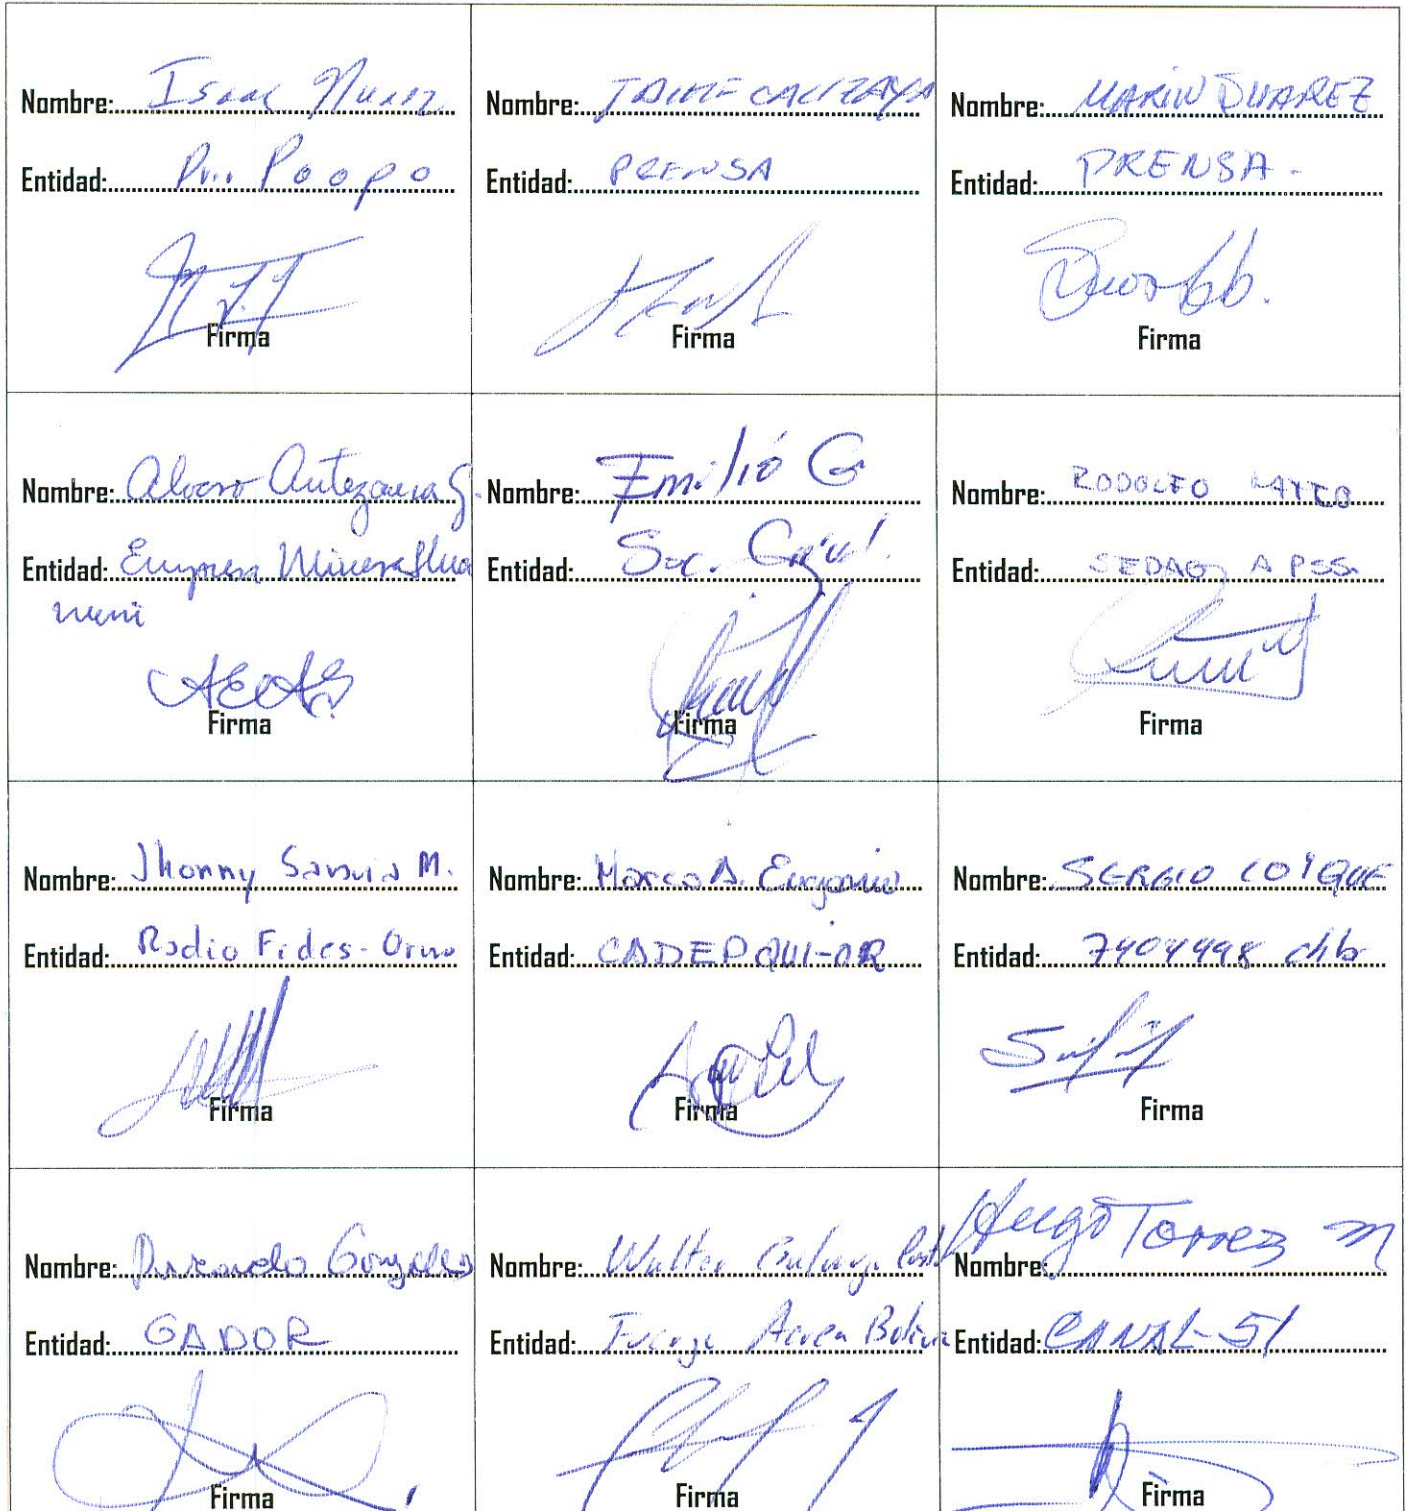 Nombre: Isaac Nuñez
Entidad: Poopo
Firma
Nombre: JAIME CALIZAYA
Entidad: PRENSA
Firma
Nombre: MARIN SUAREZ
Entidad: PRENSA.
Firma
Nombre: Alvaro Antezana G.
Entidad: Empresa Minera Hua
nuni
Firma
Nombre: Emilió G
Entidad: Soc. Civil.
Firma
Nombre: RODOLFO
Entidad: SEDAG
Firma
Nombre: Jhonny Saravia M.
Entidad: Radio Fides-Oruro
Firma
Nombre: Marco A. Eugenio
Entidad: CADEPQUI-OR
Firma
Nombre: SERGIO COIQUE
Entidad: 7404498
Firma
Nombre: Gonzales
Entidad: GADOR
Firma
Nombre: Walter
Entidad: Fuerza Aerea Bolivia
Firma
Nombre: Hugo Torrez M
Entidad: CANAL-51
Firma